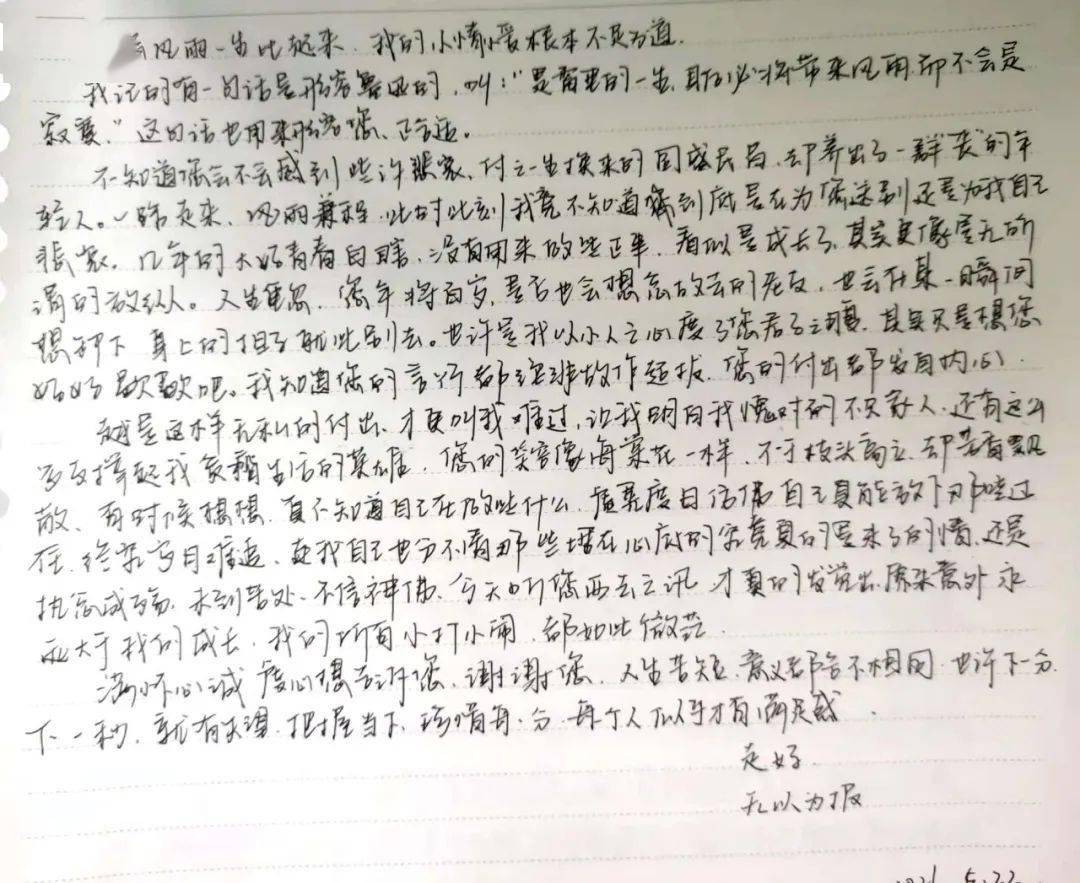 风雨一生比起来，我的小情小爱根本不足为道.
我记的有一句话是形容舞迅的，叫："是首里的一生，即必将带来风雨却不会是
寂寞." 这句话也用来形容您，正合适。
不知道您会不会感到些许悲哀，付之一生换来的国盛民昌，却养出了一群丧的年
轻人。一路走来，风雨兼程，此时此刻我竟不知道我到底是在为您送别还是为我自己
悲哀。几年的大好青春白瞎，没有用来做些正事，看似是成长了，其实更像是无所
谓的放纵。人生重忽，您年将百岁，是否也会想念故去的老友，也会在某一瞬间
想卸下身上的担子就此别去。也许是我以小人之心度了您君子之腹，其实只是想您
好好歇歇吧。我知道您的言行都绝非故作超拔，您的付出都发自内心.
越是这样无私的付出，才更叫我难过，让我明白我愧对的不只家人，还有这么
多支撑起我安稳生活的英雄，您的笑容像海棠花一样，不于枝头高立，却芳香飘
散、有时候想想，真不知道自己在做些什么，度日
在，终究岁月难追，连我自己也分不清那些埋在心底的究竟真的是未了的情，还是
执念成殇，未到苦处，不信神佛，今天听您西去之讯，才真的发觉出，原来意外永
远大于我的成长，我的所有小打小闹，都如此微茫.
满怀心诚，虔心想告诉您，谢谢您，人生苦短，意义都各不相同，也许下一分.
下一秒，就有失望，把握当下，珍惜每一分，每个人似乎才有满足感.
走好.
无以为报
2021.5.22